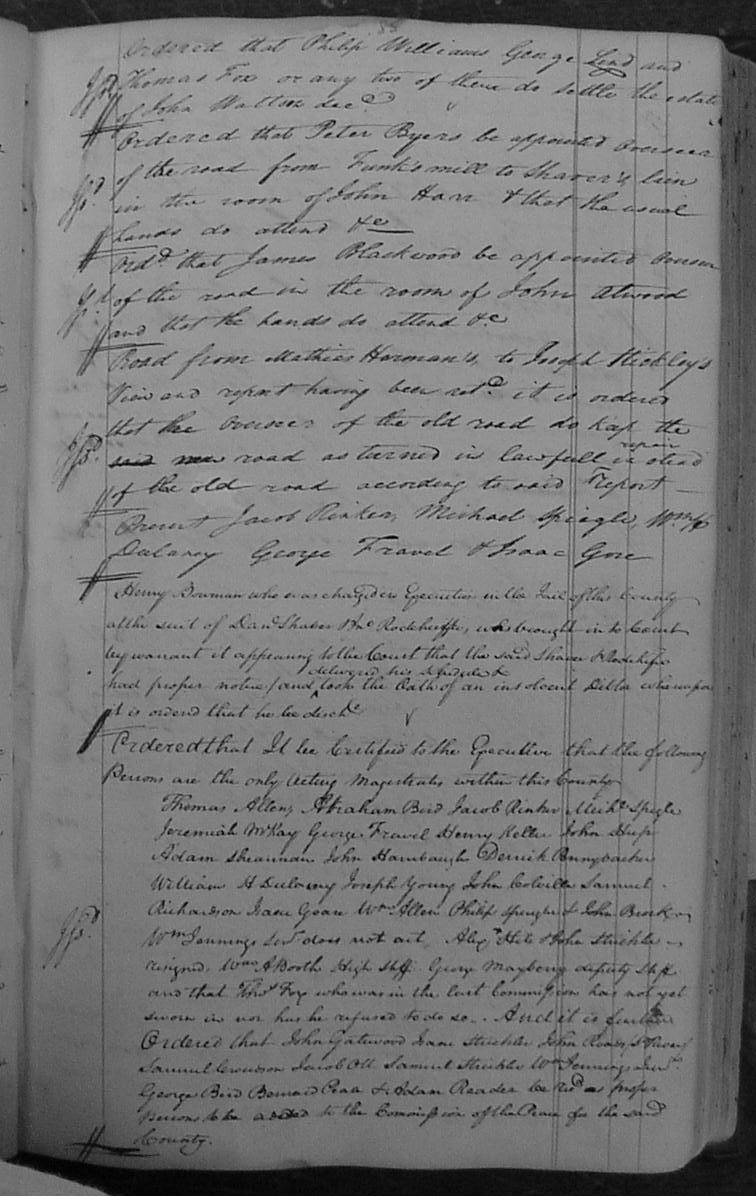 Ordered that Philip Williams George Lind and
Thomas Fox or any two of them do settle the estate
of John Watton decd
Ordered that Peter Byers be appointed overseer
of the road from Funk's mill to Shaver's lien
in the room of John Harr & that the usual
hands do attend &c
Ordd that James Blackwood be appointed overseer
of the road in the room of John Atwood
and that the hands do attend &c
Road from Mathias Harman's, to Joseph Stickley's
View and report having been retd it is ordered
that the overseer of the old road do keep the
said new road as turned in lawfull repair in stead
of the old road according to said report
Present Jacob Rinker, Michael Speigle, Wm H
Dulaney George Fravel & Isaac Gore
Henry Bowman who was charged in Execution in the Jail of this County
at the suit of Danl Shaver & Rodeheffer, was brought in to Court
by warrant it appearing to the Court that the said Shaver &
had proper notice / and delivered his schedule & took the Oath of an insolvent Debtor whereupon
it is ordered that he be dischd
Ordered that It be Certified to the Executive that the following
Persons are the only Acting Magistrates within this County
Thomas Allen, Abraham Bird Jacob Rinker Michl Speigle
Jeremiah McKay George Fravel Henry Keller John Shup
Adam Shearman John Hambaugh Derrick Pennybacker
William H Dulaney Joseph Young John Colville Samuel
Richardson Isaac Goare Wm Allen Philip Spengler & John Brock
Wm Jennings Senr does not act, Alexr Hite & John Strickler
resigned. Wm A Booth High Shff. George Mayberry deputy Shff
and that Thos Fox who was in the last Commission has not yet
sworn in nor has he refused to do so. And it is further
Ordered that John Gatewood Isaac Strickler John
Samuel Crowdson Jacob Ott Samuel Strickler Wm Jennings Junr
George Bird Bernard Peaa & Adam Reader be as proper
Persons to be added to the Commission of the Peace for the said
County.